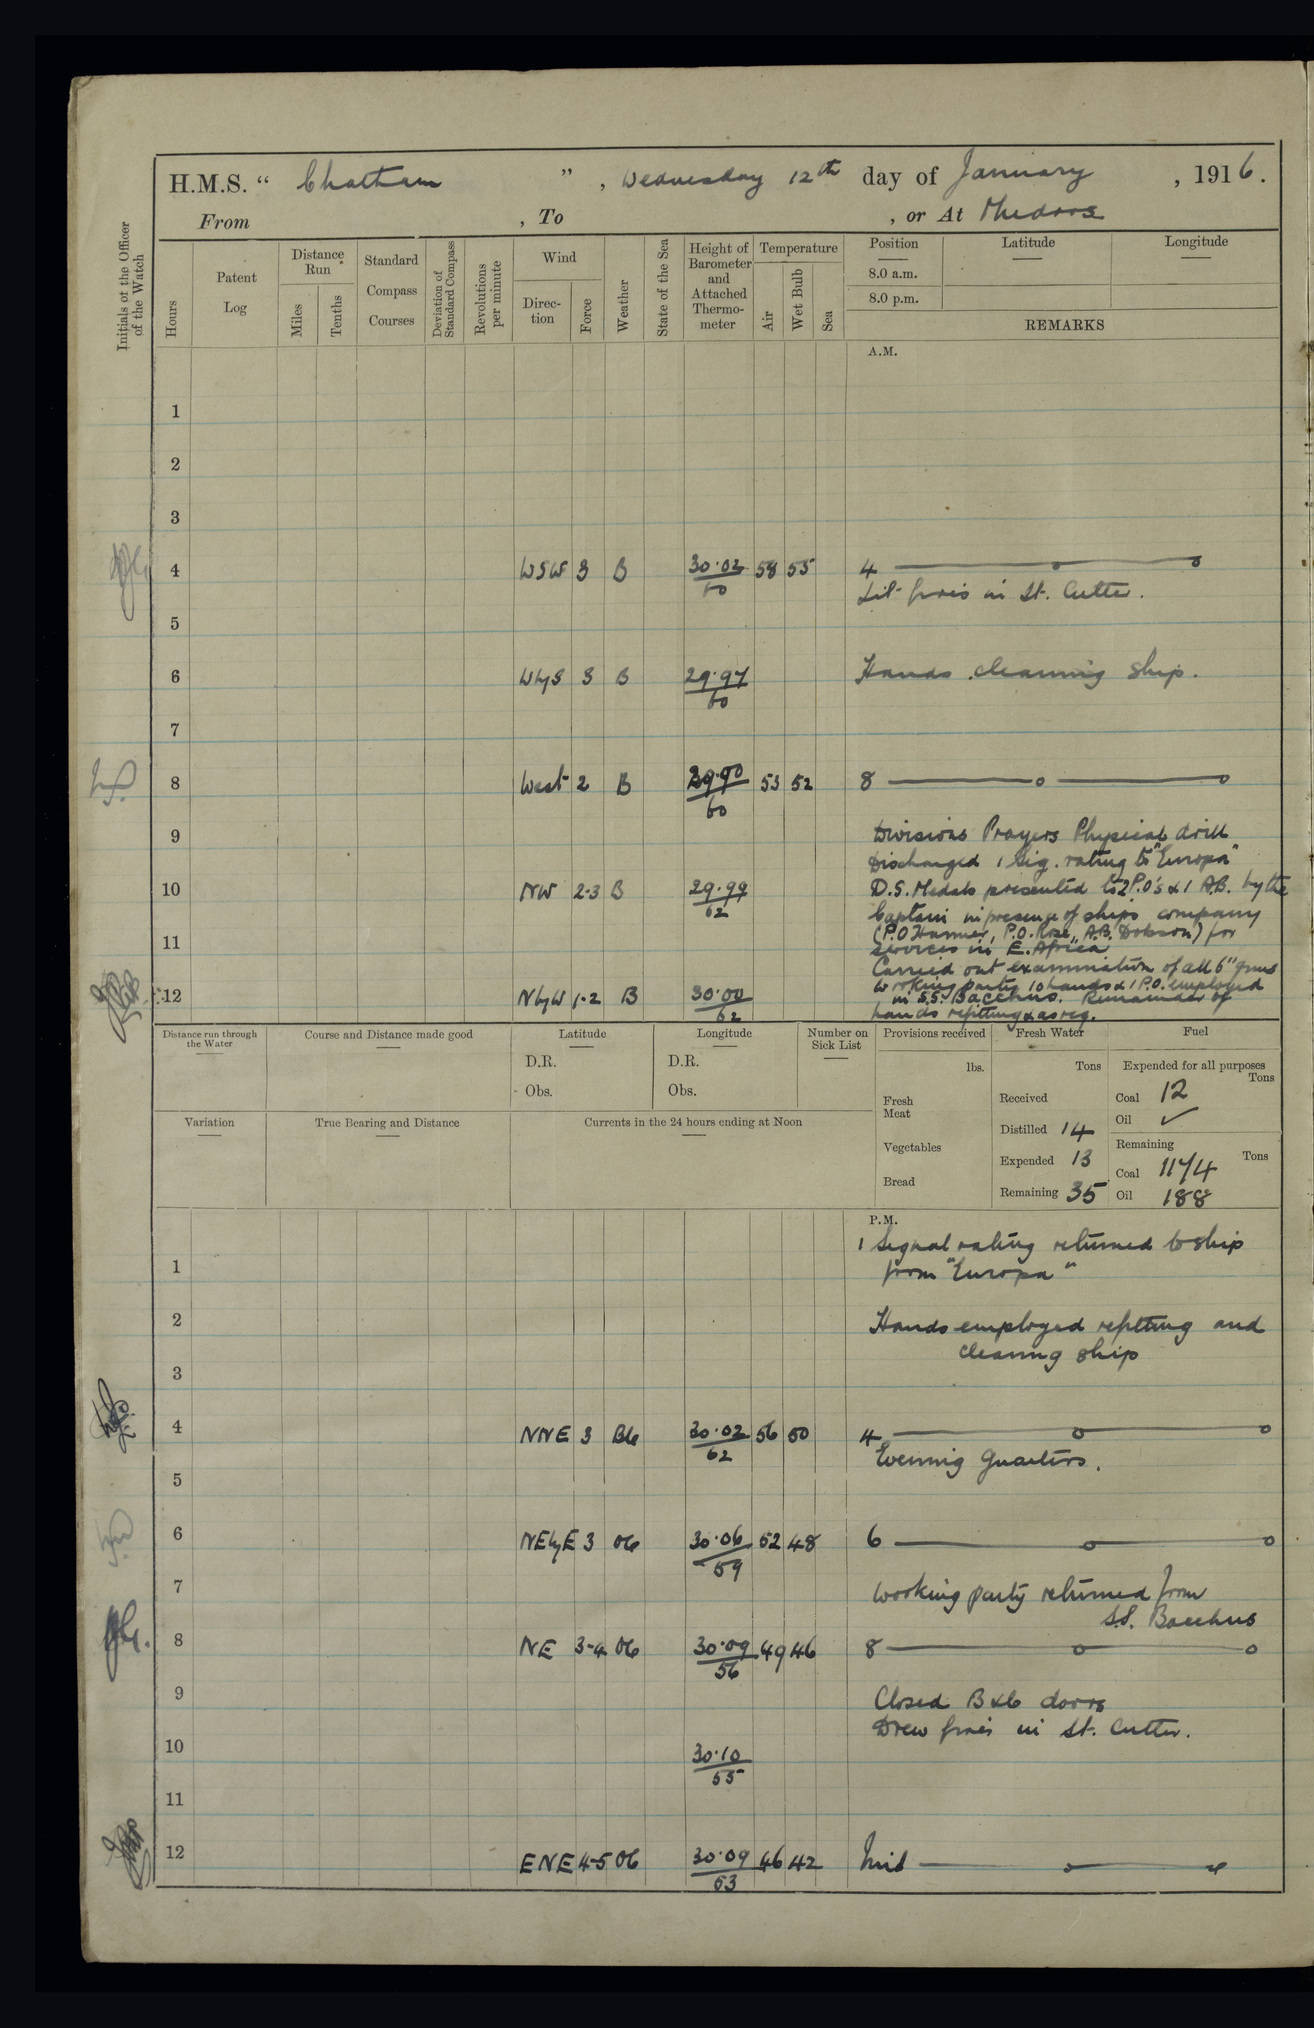 H.M.S. “ Chatham ” , Wednesday 12th day of January , 1916.
From , To , or At Mudros
Initials of the Officer of the Watch
Hours
Patent Log
Distance Run
Miles
Tenths
Standard Compass Courses
Deviation of Standard Compass
Revolutions per minute
Wind
Direction
Force
Weather
State of the Sea
Height of Barometer and Attached Thermometer
Temperature
Air
Wet Bulb
Sea
Position
Latitude
Longitude
8.0 a.m.
8.0 p.m.
REMARKS
A.M.
1
2
3
4 WSW 3 B 30.02/60 58 55 4
Lit fires in St. Cutter.
5
6 WbyS 3 B 29.97/60 Hands cleaning ship.
7
8 West 2 B 29.90/60 53 52 8
9 Divisions Prayers Physical drill
Discharged 1 Sig. rating to "Europa"
10 NW 2.3 B 29.99/62 D.S. Medals presented to 2 P.O's & 1 A.B. by the
Captain in presence of ships company
(P.O. Hammer, P.O. Rose, A.B. Dobson) for
11 services in E. Africa
Carried out examination of all 6" guns
12 NbyW 1.2 B 30.00/62 Working party 10 hands & 1 P.O. employed
in S.S. Bacchus. Remainder of
hands refitting & as req.
Distance run through the Water
Course and Distance made good
Latitude
D.R.
Obs.
Longitude
D.R.
Obs.
Number on Sick List
Provisions received
lbs.
Fresh Meat
Vegetables
Bread
Fresh Water
Tons
Received
Distilled 14
Expended 13
Remaining 35
Fuel
Expended for all purposes
Tons
Coal 12
Oil ✓
Remaining
Tons
Coal 1174
Oil 188
Variation
True Bearing and Distance
Currents in the 24 hours ending at Noon
P.M.
1 Signal rating returned to ship
1 from "Europa"
2 Hands employed refitting and
cleaning ship
3
4 NNE 3 Bc 30.02/62 56 50 4
Evening Quarters.
5
6 NEbyE 3 Oc 30.06/59 52 48 6
7 Working party returned from
S.S. Bacchus
8 NE 3-4 Oc 30.09/56 49 46 8
9 Closed B & C doors
Drew fires in St. Cutter.
10 30.10/55
11
12 ENE 4-5 Oc 30.09/53 46 42 Mid